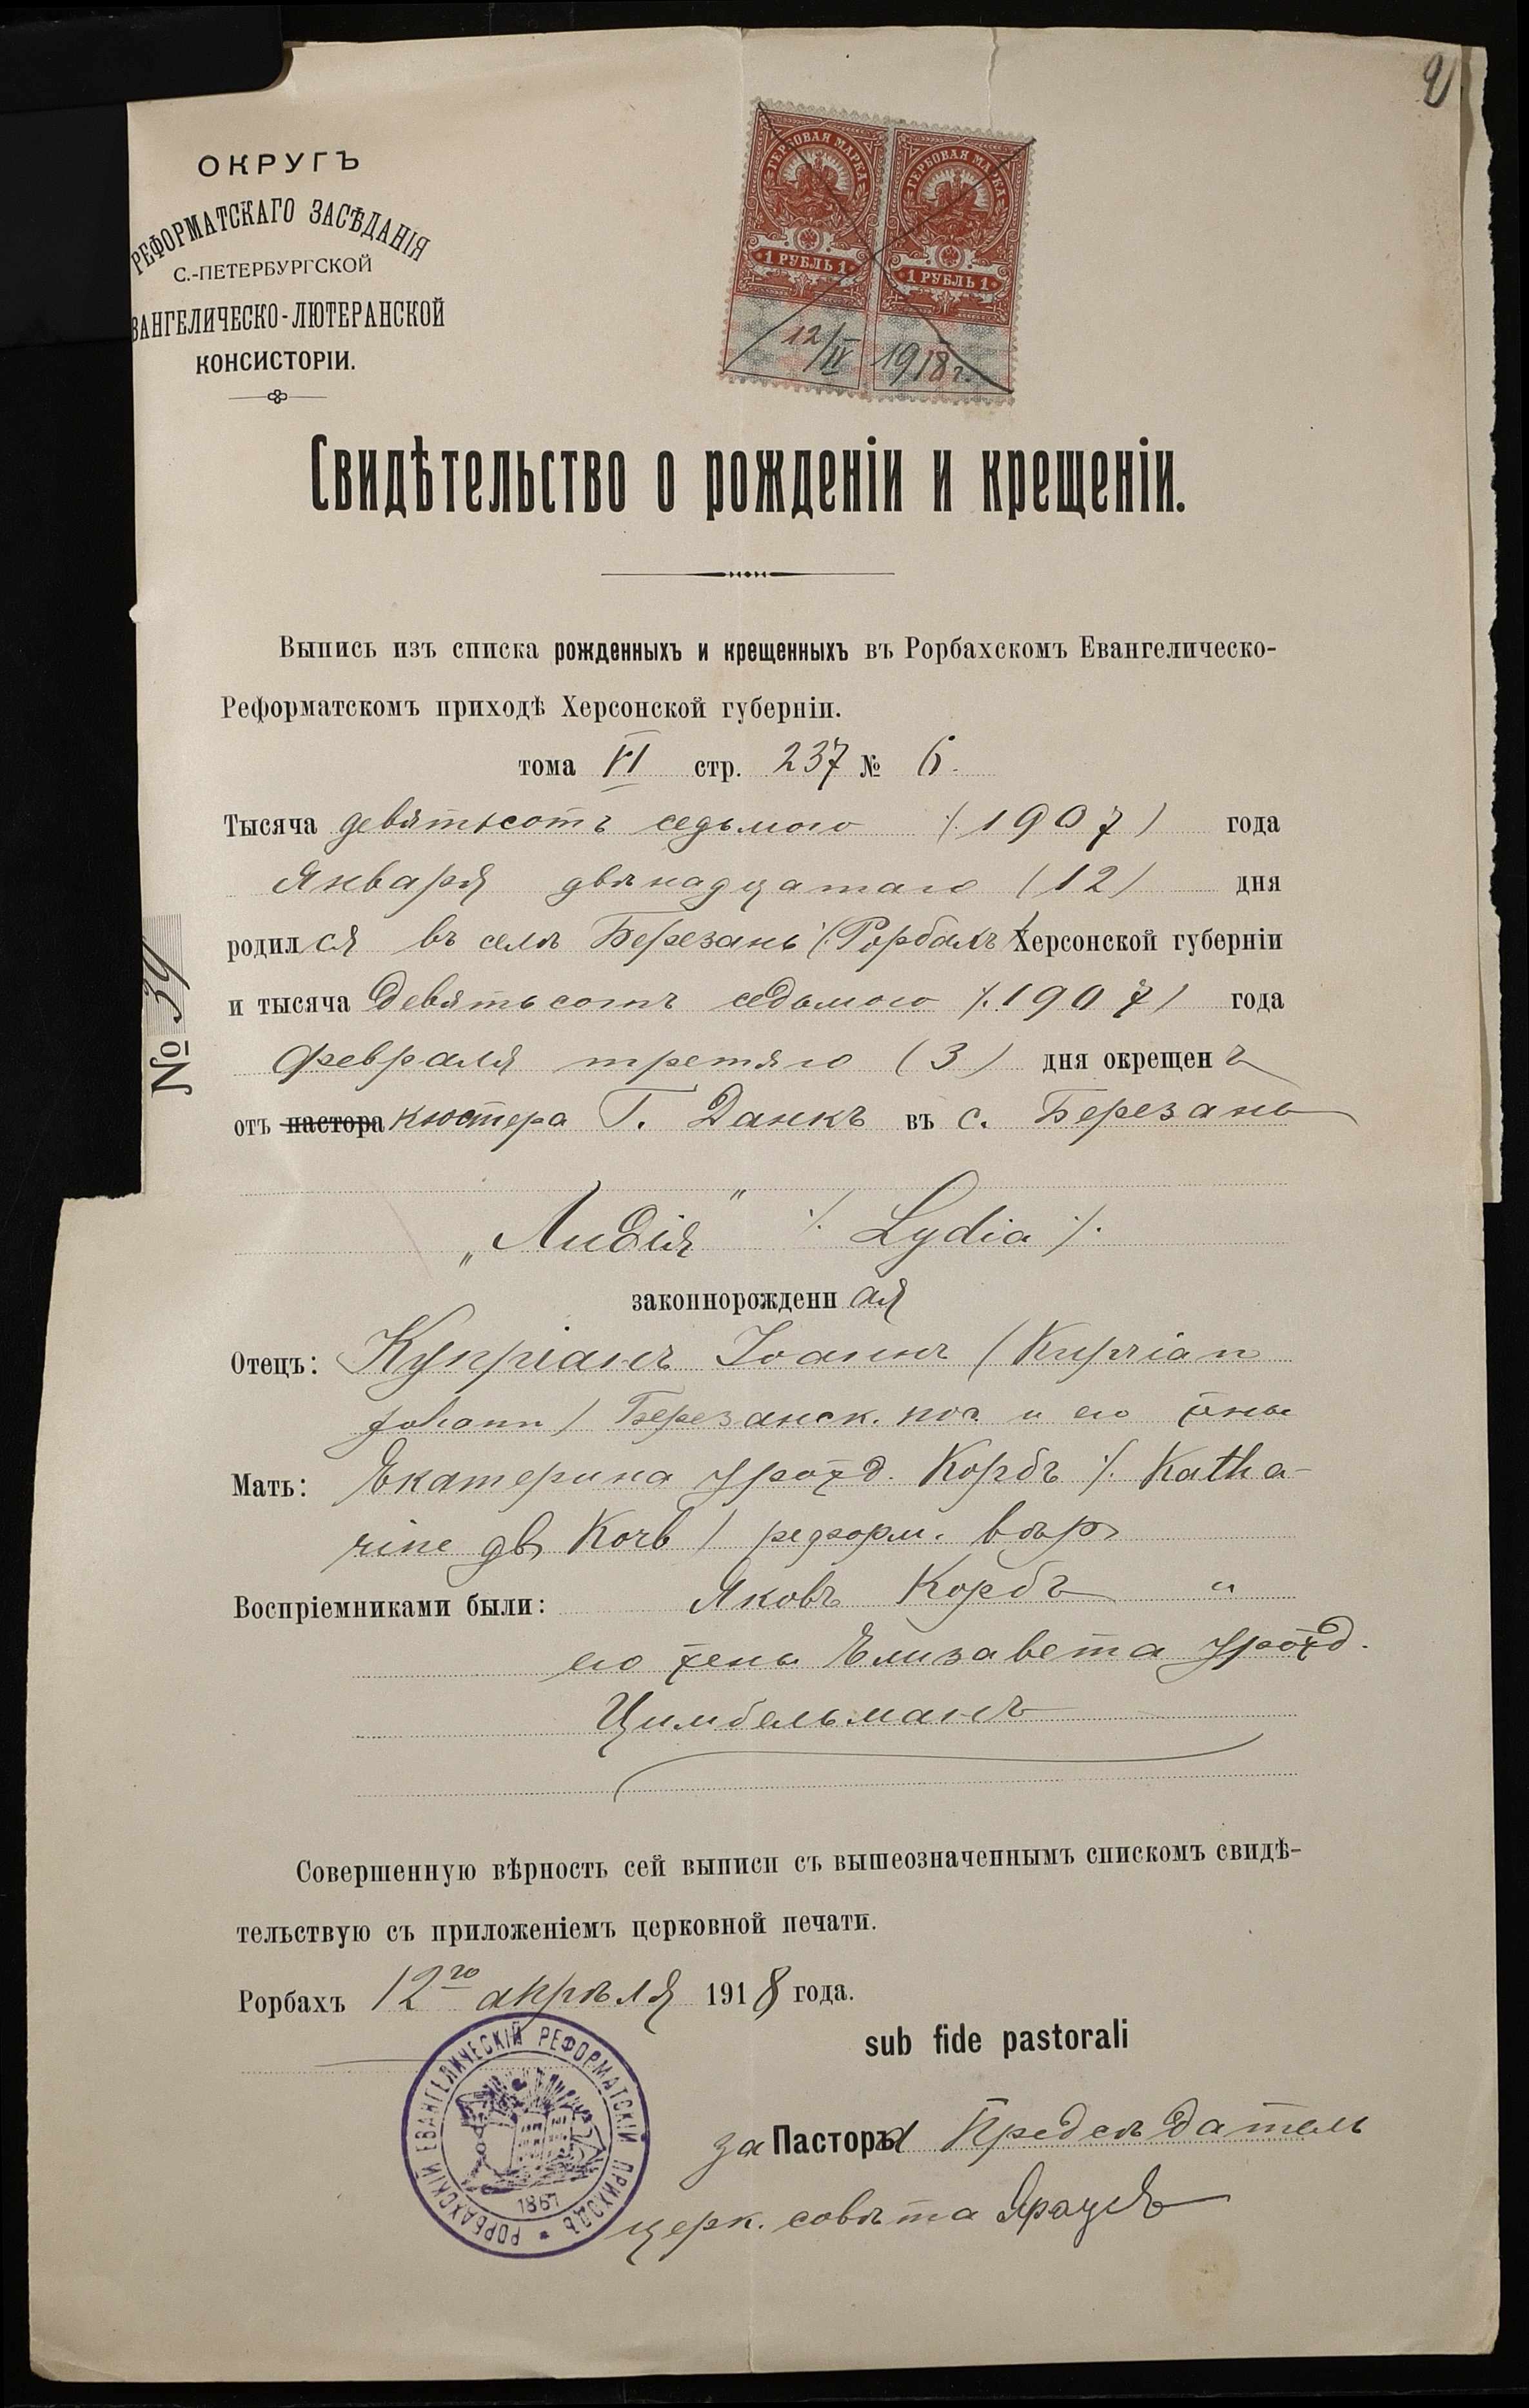 2
ОКРУГЪ
РЕФОРМАТСКАГО ЗАСѢДАНІЯ
С.-ПЕТЕРБУРГСКОЙ
ВАНГЕЛИЧЕСКО-ЛЮТЕРАНСКОЙ
КОНСИСТОРІИ.
ГЕРБОВАЯ МАРКА ГЕРБОВАЯ МАРКА
1 РУБЛЬ 1 1 РУБЛЬ 1
12/IV 1918 г.
Свидѣтельство о рожденіи и крещеніи.
Выпись изъ списка рожденныхъ и крещенныхъ въ Рорбахскомъ Евангелическо-
Реформатскомъ приходѣ Херсонской губерніи.
тома VI стр. 237 № 6.
Тысяча девятьсотъ седьмого /. 1907 / года
Января двѣнадцатаго / 12 / дня
родился въ селѣ Березань /. Рорбахъ / Херсонской губерніи
и тысяча девятьсотъ седьмого /. 1907 / года
февраля третьяго ( 3 ) дня окрещенъ
отъ пастора кюстера Г. Данкъ въ с. Березань
№ 39
„Лидія" /. Lydia /.
законнорожденная
Отецъ: Купріанъ Іоаннъ ( Kuprian
Johann ) Березанск. пос. и его жены
Мать: Екатерина урожд. Корбъ /. Katha-
rine geb. Korb / реформ. вѣр.
Воспріемниками были: Яковъ Корбъ и
его жена Елизавета урожд.
Цимбельманъ
Совершенную вѣрность сей выписи съ вышеозначеннымъ спискомъ свидѣ-
тельствую съ приложеніемъ церковной печати.
Рорбахъ 12го апрѣля 1918 года.
sub fide pastorali
РОРБАХСКІЙ ЕВАНГЕЛИЧЕСКІЙ РЕФОРМАТСКІЙ ПРИХОДЪ *
1867
за Пастора Предсѣдатель
церк. совѣта